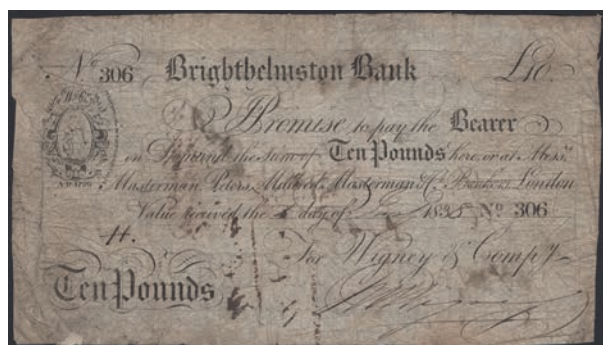 No 306 Brighthelmston Bank £10
I Promise to pay the Bearer
on Demand the sum of Ten Pounds here, or at Messrs
Masterman, Peters, Mildred, Masterman & Co. Bankers London
Value received the day of 18 No 306
For Wigney & Compy
Ten Pounds